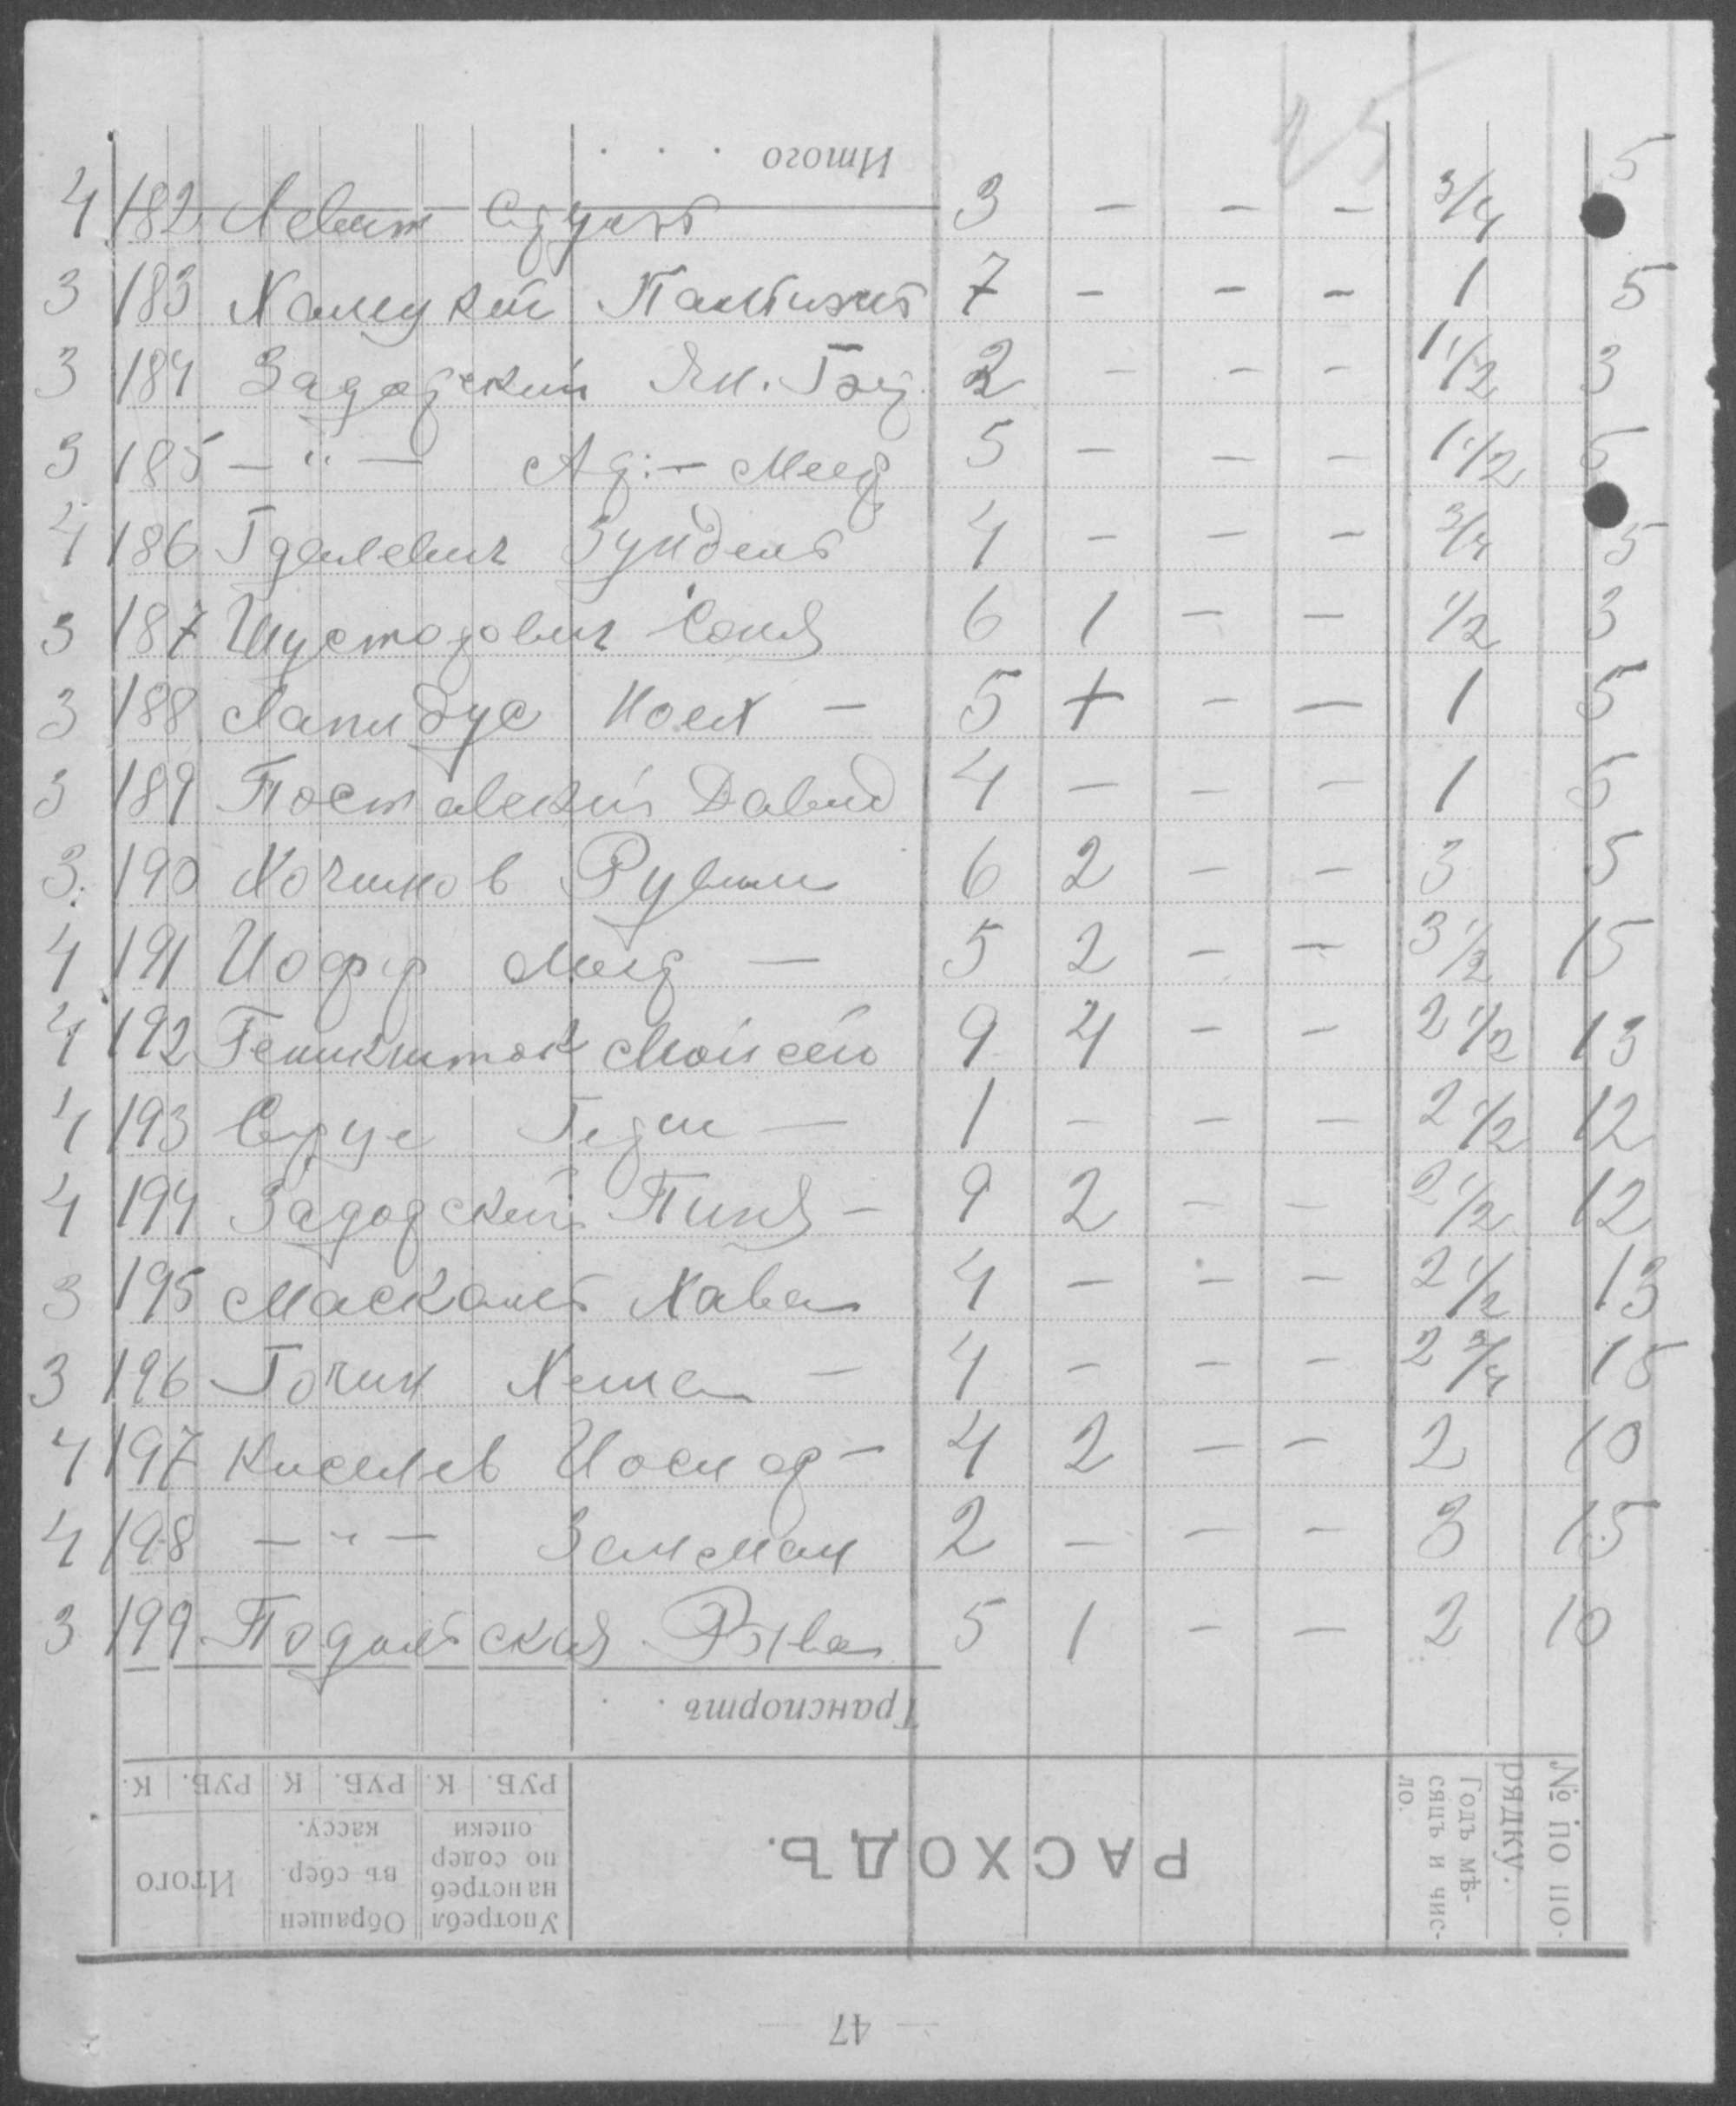 25
Итого . . .
4 182 Левит 3 – – – 3/4 5
3 183 7 – – – 1 5
3 184 Задодский Ян. 2 – – – 1 1/2 3
3 185 – " – 5 – – – 1 1/2 5
4 186 Гдалевич Зундель 4 – – – 3/4 5
3 187 Шусторович Соня 6 1 – – 1/2 3
3 188 Лапидус Ноех – 5 + – – 1 5
3 189 Поставский Давид 4 – – – 1 5
3. 190 Хочинов Рувин 6 2 – – 3 5
4 191 Иофф – 5 2 – – 3 1/2 15
4 192 Мойсей 9 4 – – 2 1/2 13
4 193 – 1 – – – 2 1/2 12
4 194 Задодский Пиня – 9 2 – – 2 1/2 12
3 195 Маскаль Хава 4 – – – 2 1/2 13
3 196 Гочин – 4 – – – 2 3/4 15
4 197 Киселев Иосиф – 4 2 – – 2 10
4 198 – " – Залман 2 – – – 3 15
3 199 Подольская Рыва 5 1 – – 2 10
Транспортъ . .
№ по по-
рядку.
Годъ мѣ-
сяцъ и чис-
ло.
РАСХОДЪ.
Употребл
на истреб
по содер
опеки
РУБ. К.
Обращен
въ сбер.
кассу.
РУБ. К
Итого
РУБ. К.
— 47 —